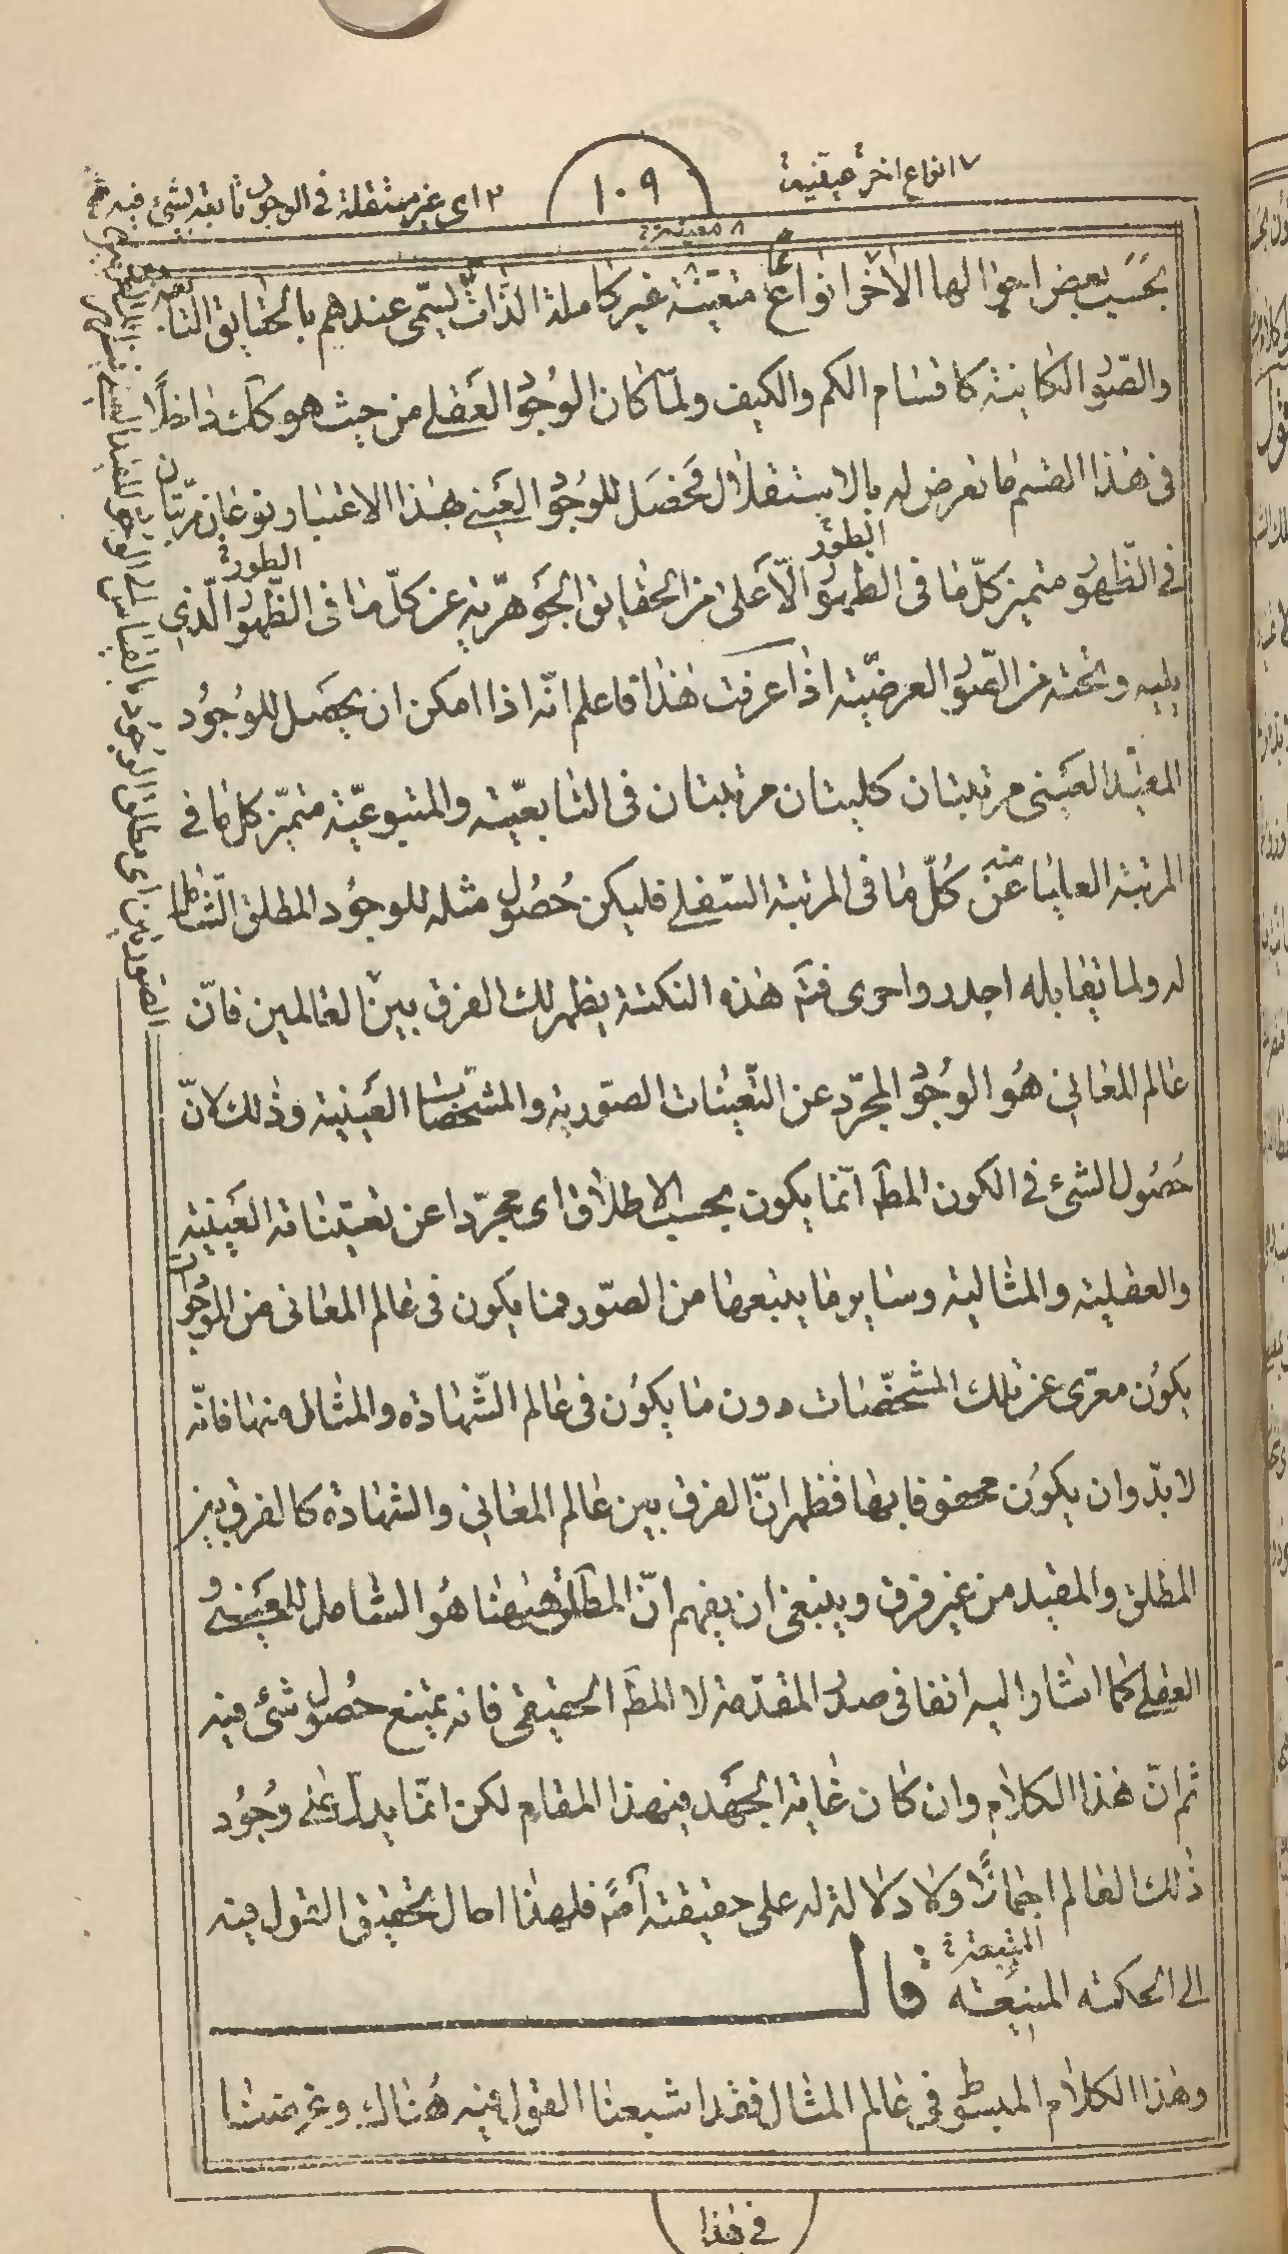 ٧ انواع اخر حقيقية
١٠٩
٢ اى غير مستقلة فى الوجود تابعة لشئ فيه
٨ معينة
بحسب بعض احوالها الأخر انواعاً متعينة غير كاملة الذات يسمى عندهم بالحقايق التابعة
والصور الكاينة كاقسام الكم والكيف ولما كان الوجود العقلى من حيث هو كك ناظراً
فى هذا القسم ما تعرض له بالاستقلال فحصل للوجود العينى بهذا الاعتبار نوعان مرتبتان
الطور
الطور
فى الظهور متميز كلّ ما فى الظهور الأعلى من الحقايق الجوهرية عن كلّ ما فى الظهور الّذى
يليه وتحته من الصور العرضيّة اذا عرفت هذا فاعلم انّه اذا امكن ان يحصل للوجود
المقيد العينى مرتبتان كليتان مرتبتان فى التابعيّة والمتبوعيّة متميّز كل ما فى
منه
المرتبة العليا عن كلّ ما فى المرتبة السفلى فليكن حصول مثله للوجود المطلق الشامل
له ولما يقابله اجدر واحرى فثم هذه النكتة يظهر لك الفرق بين العالمين فانّ
عالم المعانى هو الوجود المجرّد عن التّعينات الصّورية والمشخّصات العينية وذلك لانّ
حصول الشئ فى الكون المط انّما يكون بحسب الاطلاق اى مجرّدا عن تعيّناته العينية
والعقلية والمثالية وساير ما يتبعها من الصّور فما يكون فى عالم المعانى من الموجودات
يكون معرّى عن تلك المشخّصات دون ما يكون فى عالم الشّهادة والمثال منها فانّه
لا بدّ وان يكون محفوفا بها فظهر انّ الفرق بين عالم المعانى والشهادة كالفرق بين
المطلق والمقيد من غير فرق وينبغى ان يفهم انّ المطلق هيهنا هو الشامل للعينى و
العقلى كما اشار اليه انفا فى صدر المقدّمة لا المط الحقيقى فانه يمتنع حصول شئ فيه
ثم انّ هذا الكلام وان كان غاية الجهد فى هذا المقام لكن انّما يدلّ على وجود
ذلك العالم اجمالاً ولا دلالة له على حقيقته اصلا فلهذا احال تحقيق القول فيه
المتيعة
الى الحكمة المنيعة قال
وهذا الكلام المبسوط فى عالم المثال فقد اشبعنا القول فيه هناك وغرضنا
فى هذا